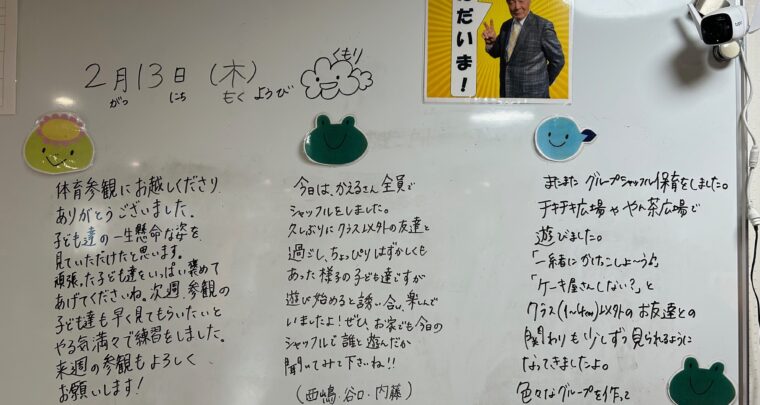 2月13日(木)
がつ にち もくようび
くもり
ただいま!
体育参観にお越しくださり
ありがとうございました。
子ども達の一生懸命な姿を
見ていただけたと思います。
頑張った子ども達をいっぱい褒めて
あげてくださいね。次週、参観の
子ども達も早く見てもらいたいと
やる気満々で練習をしました。
来週の参観もよろしく
お願いします!
今日は、かえるさん全員で
シャッフルをしました。
久しぶりにクラス以外の友達と
過ごし、ちょっぴりはずかしくも
あった様子の子ども達ですが
遊び始めると誘い合い、楽しんで
いましたよ!ぜひ、お家でも今日の
シャッフルで誰と遊んだか
聞いてみて下さいね!!
(西嶋・谷口・内藤)
またまた グループシャッフル保育をしました。
チキチキ広場ややん茶広場で
遊びました。
「一緒にかけっこしよ〜う♪」
「ケーキ屋さんしない?」と
クラス(1〜4cm)以外のお友達との
関わりも少しずつ見られるように
なってきましたよ。
色々なグループを作って